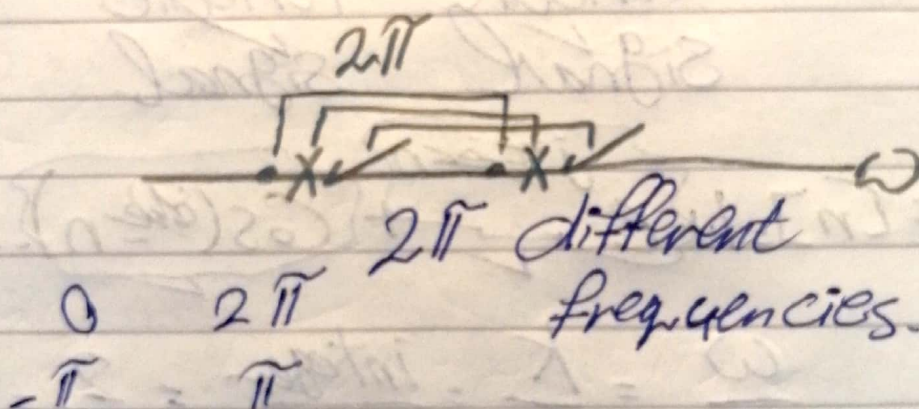 2π
ω
2π different
0 2π frequencies.
-π π